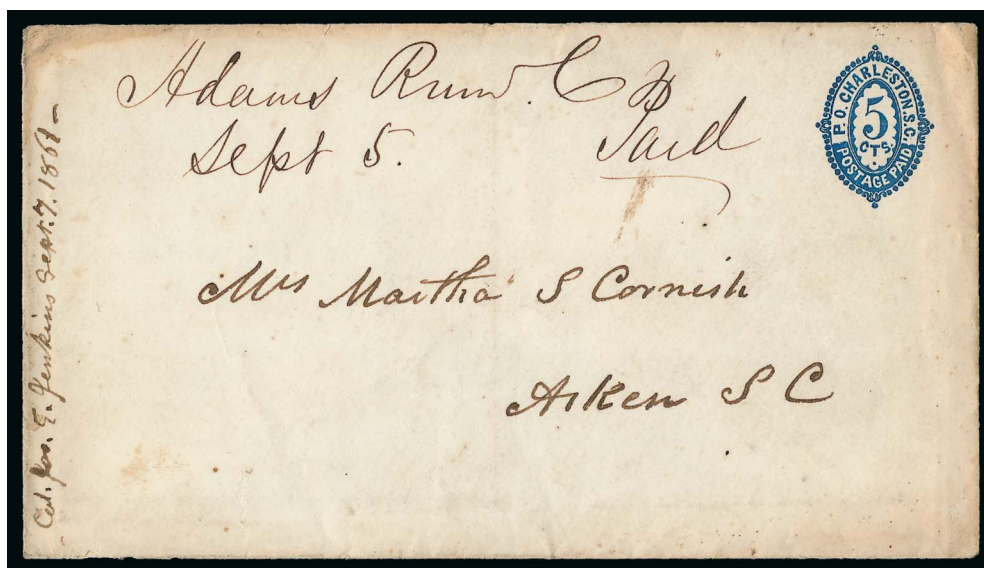 Adams Run. C
Sept 5. Paid
P.O. CHARLESTON. S.C.
5
CTS.
POSTAGE PAID
Mrs Martha S Cornish
Aiken S C
Col. Jos. E. Jenkins Sept. 7. 1861 -